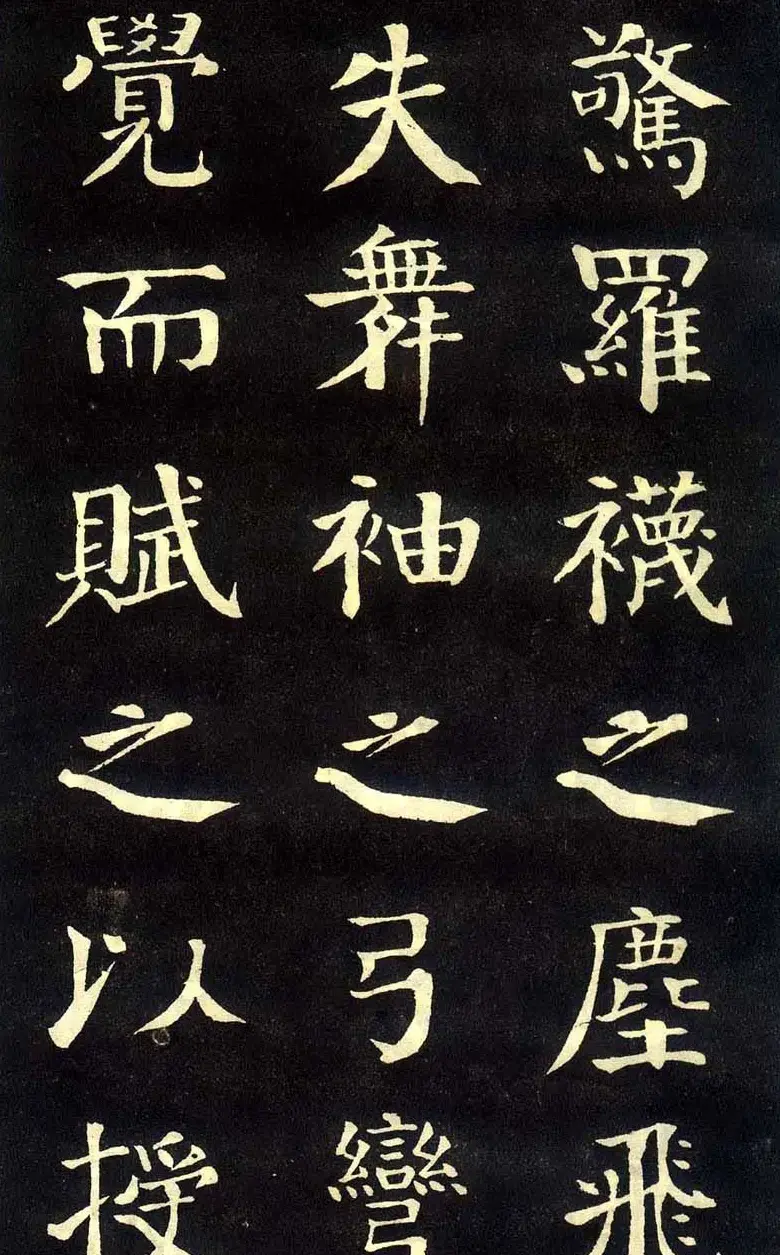 驚羅襪之塵飛
失舞袖之弓彎
覺而賦之以授